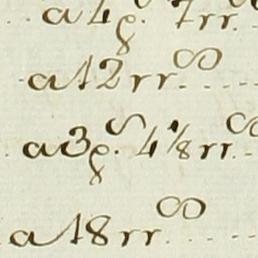 a 4 ϱ∞ 7 rr.
a 12 rr∞ ....
a 3 ϱ∞ 4 1/8 rr∞
a 18 rr∞ ....